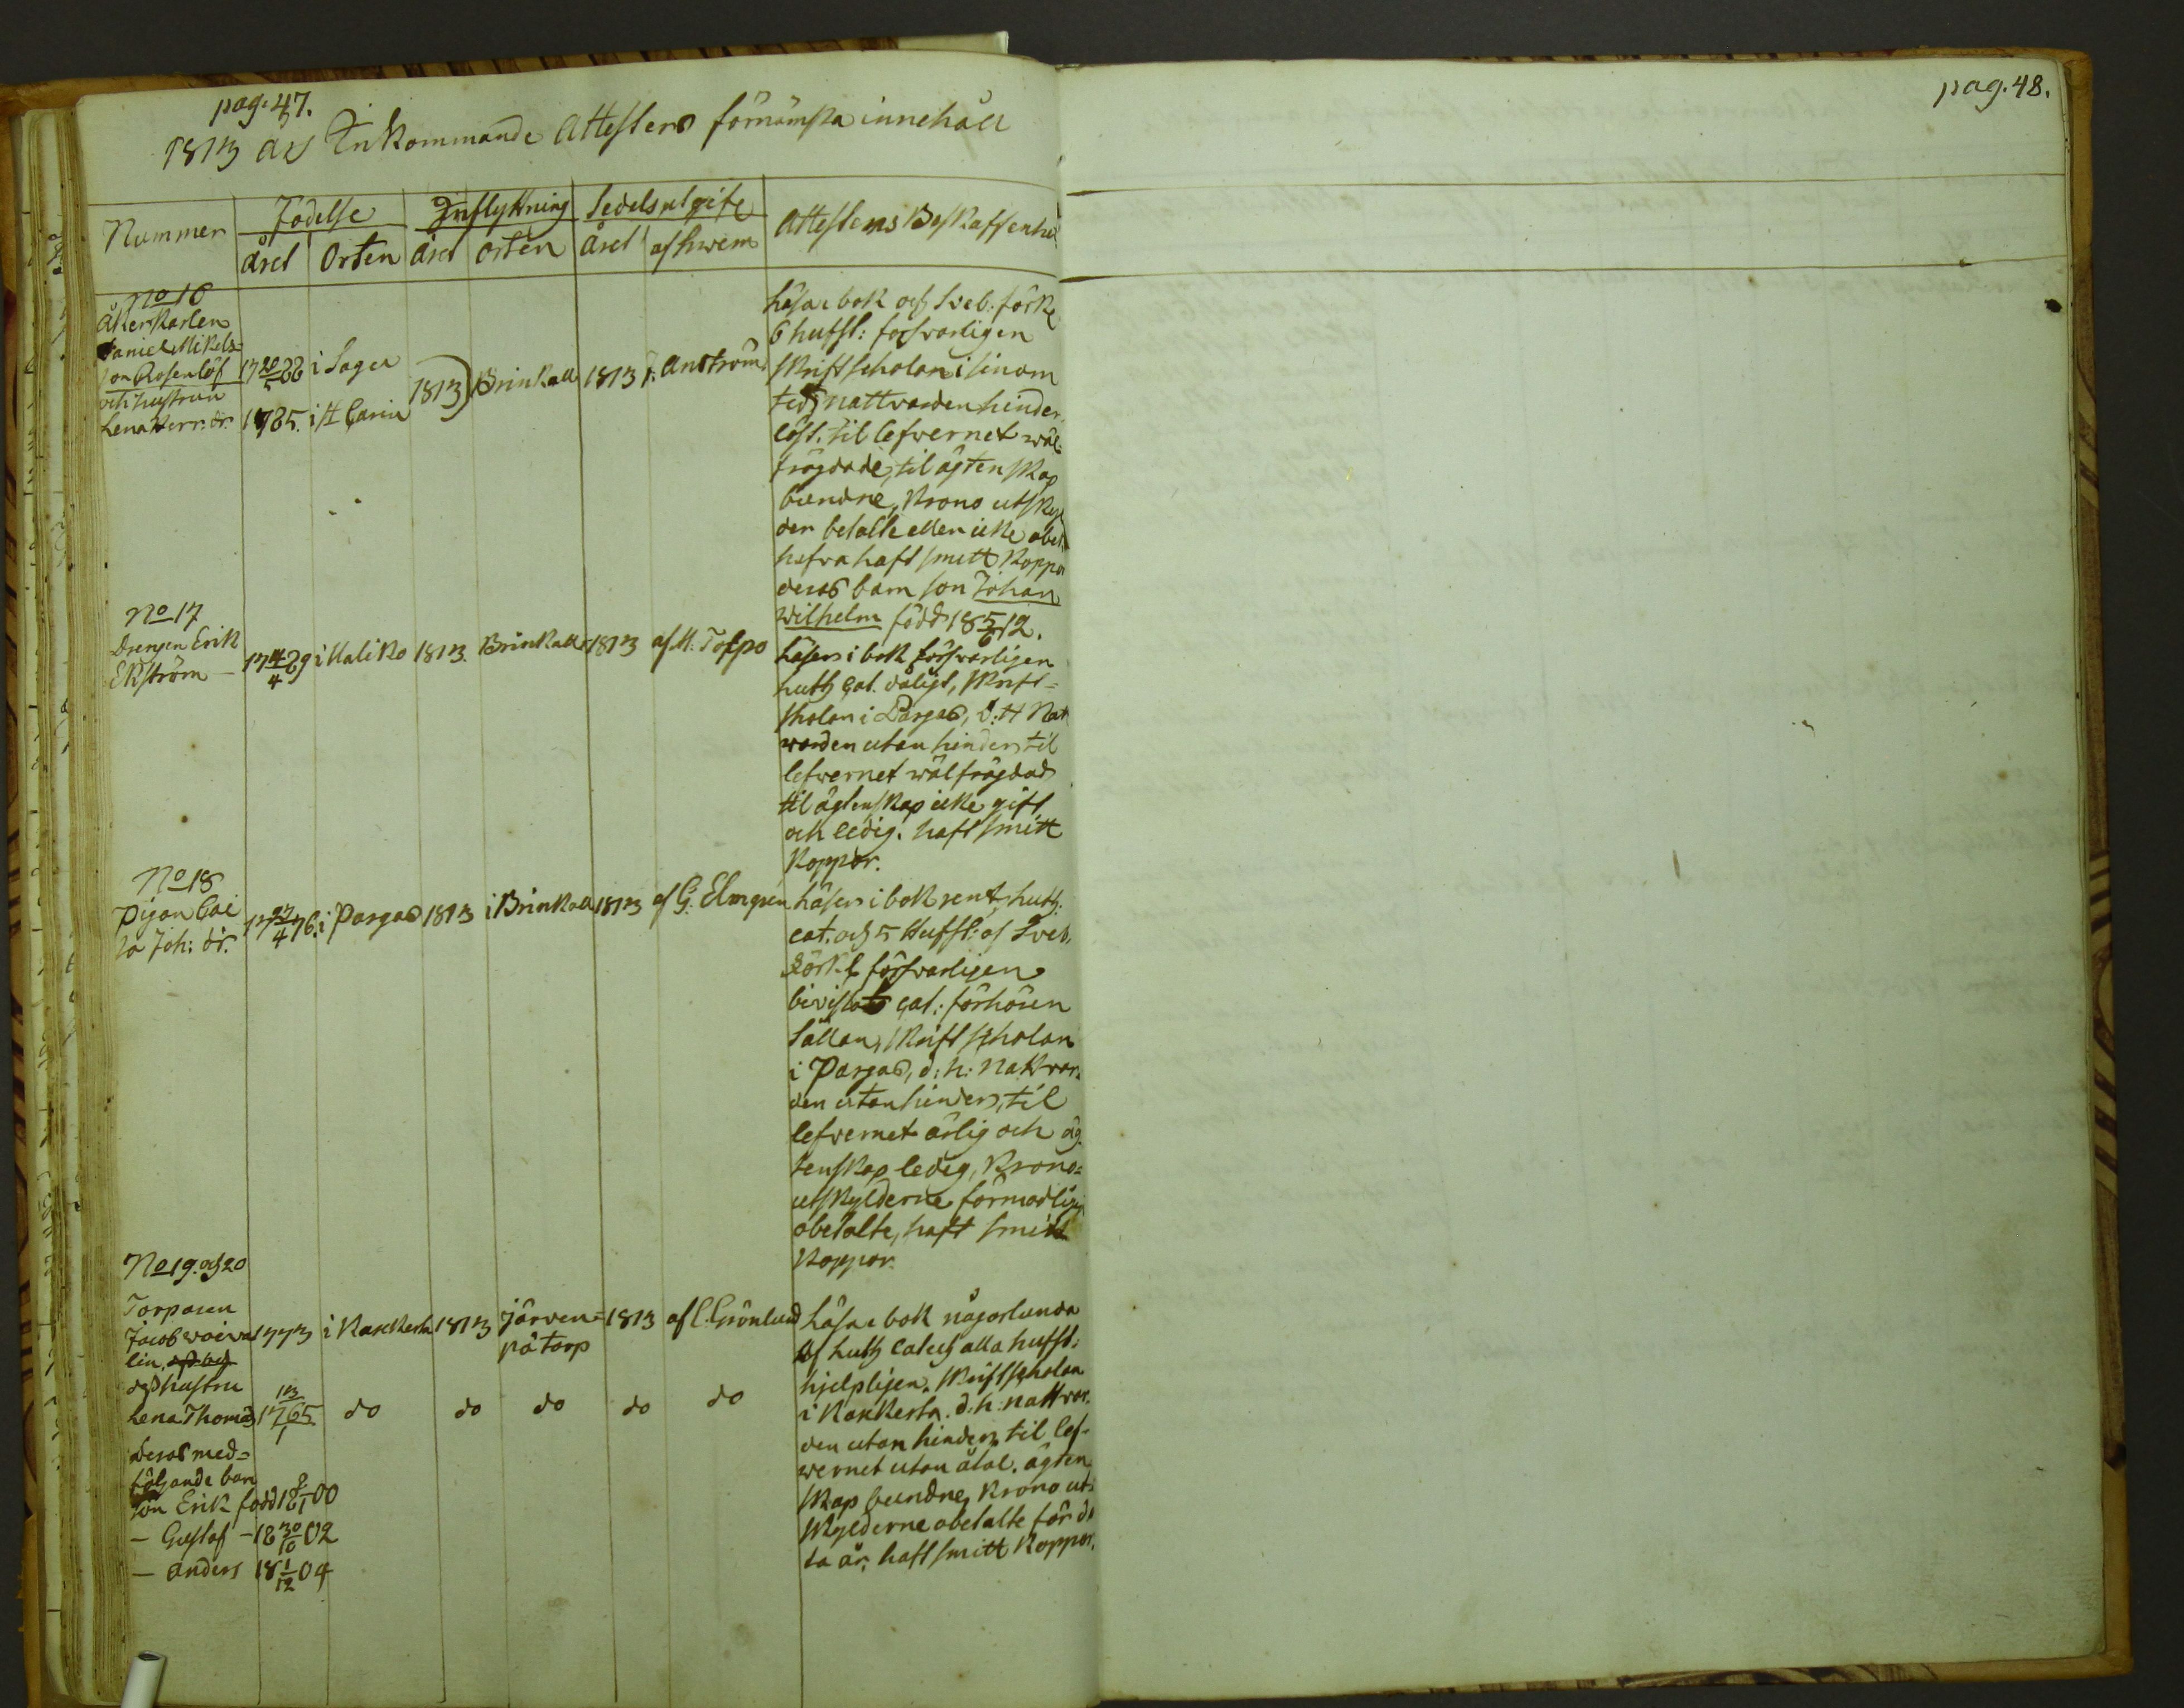 pag. 47.
1813 års Inkommande Attesters förnämsta innehåll
Nummer
Födelse
Inflyttning
Sedelsutgift
Attestens Beskaffenhet
året
Orten
året
orten
året
af hwem
No 16
Åkerkarlen
Daniel Mikels=
son Rosenlöf
och hustrun
Lena Herr: dr:
1785.
i Sagu
i St Carin
1813
Brinkall
1813
Anström
läsa i bok och Sveb: förkl
6 husfl: försvarligen
Skriftscholan i sinom
tid, nattvarden hinder
löst. til lefvernet wäl
frägdade, til ägtenskap
bundne, Krono utskyl
der betalte eller icke obet.
hafva haft smitt Koppor
deras barn son Johan
Wilhelm född 18 5/6 12.
No 17
Drengen Erik
Ekström
17 4/4 89
i Haliko
1813.
Brinkall
1813
af M. Tolpo
läser i bok försvarligen
huth cat. dåligt, Skrift=
skolan i Pargas, d: H Nat
warden utan hinder, til
lefvernet wälfrägdad
til ägtenskap icke gift
och ledig. haft smitt
Koppor.
No 18
Pigan Cai
sa Joh: dr.
17 27/4 76.
i Pargas
1813
i Brinkall
1813
af G: Elmgren
läser i bok rent, huth:
cat. och 5 Husfl: af Sveb.
förkl försvarligen
bivistat cat: förhören
Sällan, Skriftscholan
i Pargas, d: h: Nattvar=
den utan hinder, til
lefvernet ärlig och äg
tenskap ledig, Krono=
utskylderne förmodligen
obetalte, haft smitt
Koppor.
No 19. och 20
Torparen
Jacob
lin,
dess hustru
Lena Thoma
deras med=
följande barn
son Erik född 18 2/1 00
— Gustaf - 18 30/10 02
— Anders 18 1/12 04
1773
i Kakkerta
1813
Järven=
pä torp
1813
af C. Grönlund
17 13/1 65.
do
do
do
do
do
läsa i bok någorlunda
af huth Catech alla husfl:
hjelpligen, Skriftscholan
i Kakkerta. d: h: nattvar.
den utan hinder, til lef-
wernet utan åtal. ägten
skap bundne, Krono ut=
skylderne obetalte för det
ta år, haft smitt Koppor.
pag. 48.